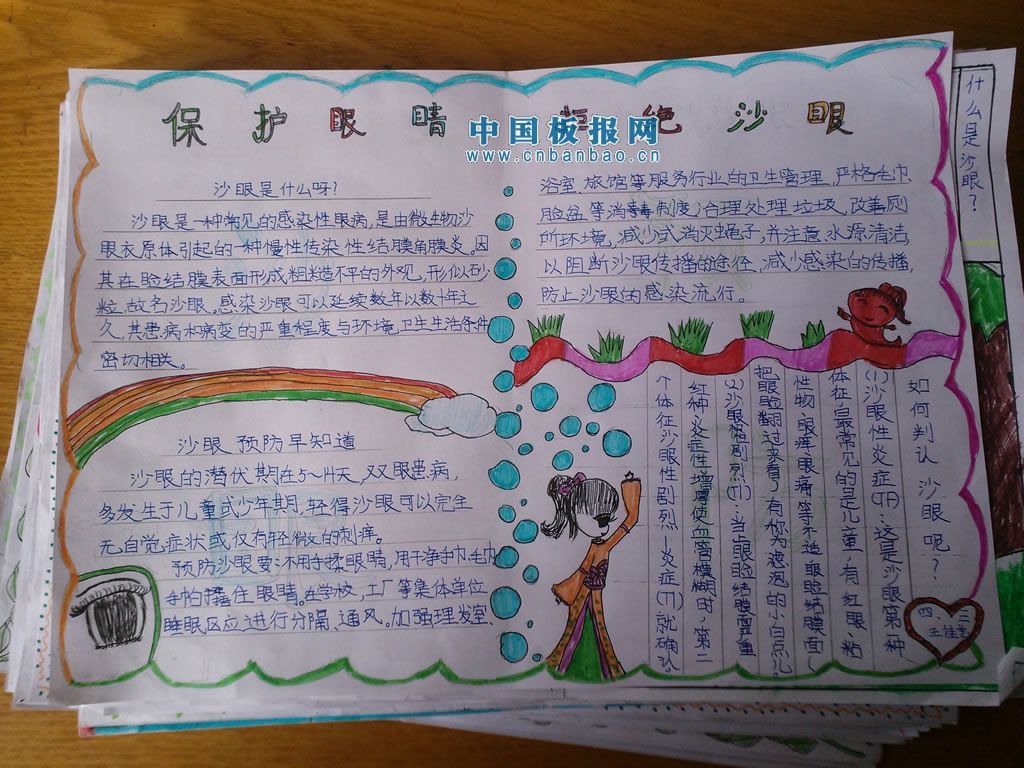 保护眼睛 拒绝沙眼
中国板报网
www.cnbanbao.cn
沙眼是什么呀?
沙眼是一种常见的感染性眼病,是由微生物沙
眼衣原体引起的一种慢性传染性结膜角膜炎。因
其在睑结膜表面形成粗糙不平的外观,形似砂
粒,故名沙眼。感染沙眼可以延续数年以数十年之
久,其患病和病变的严重程度与环境卫生生活条件
密切相关。
沙眼预防早知道
沙眼的潜伏期在5~14天,双眼患病,
多发生于儿童或少年期,轻得沙眼可以完全
无自觉症状或仅有轻微的刺痒。
预防沙眼要不用手揉眼睛,用干净手巾毛巾
手帕 住眼睛。在学校,工厂等集体单位
睡眠区应进行分隔、通风。加强理发室、
浴室,旅馆等服务行业的卫生管理,严格毛巾
脸盆等消毒制度;合理处理垃圾,改善厕
所环境,减少或消灭蝇子,并注意水源清洁,
以阻断沙眼传播的途径,减少感染的传播,
防止沙眼的感染流行。
如何判认沙眼呢?
(1)沙眼性炎症(TF)这是沙眼第一种
体征最常见的是儿童,有红眼、粘
性物,眼痒眼痛等不适眼睑结膜面(
把眼睑翻过来看)有称为滤泡的小白点儿。
(2)沙眼性剧烈(TI)…当上眼睑结膜严重
红种炎症性增厚使血管模糊时,第二
个体征沙眼性剧烈—炎症(TI)就确认。
四、三
王佳
什么是沙眼?